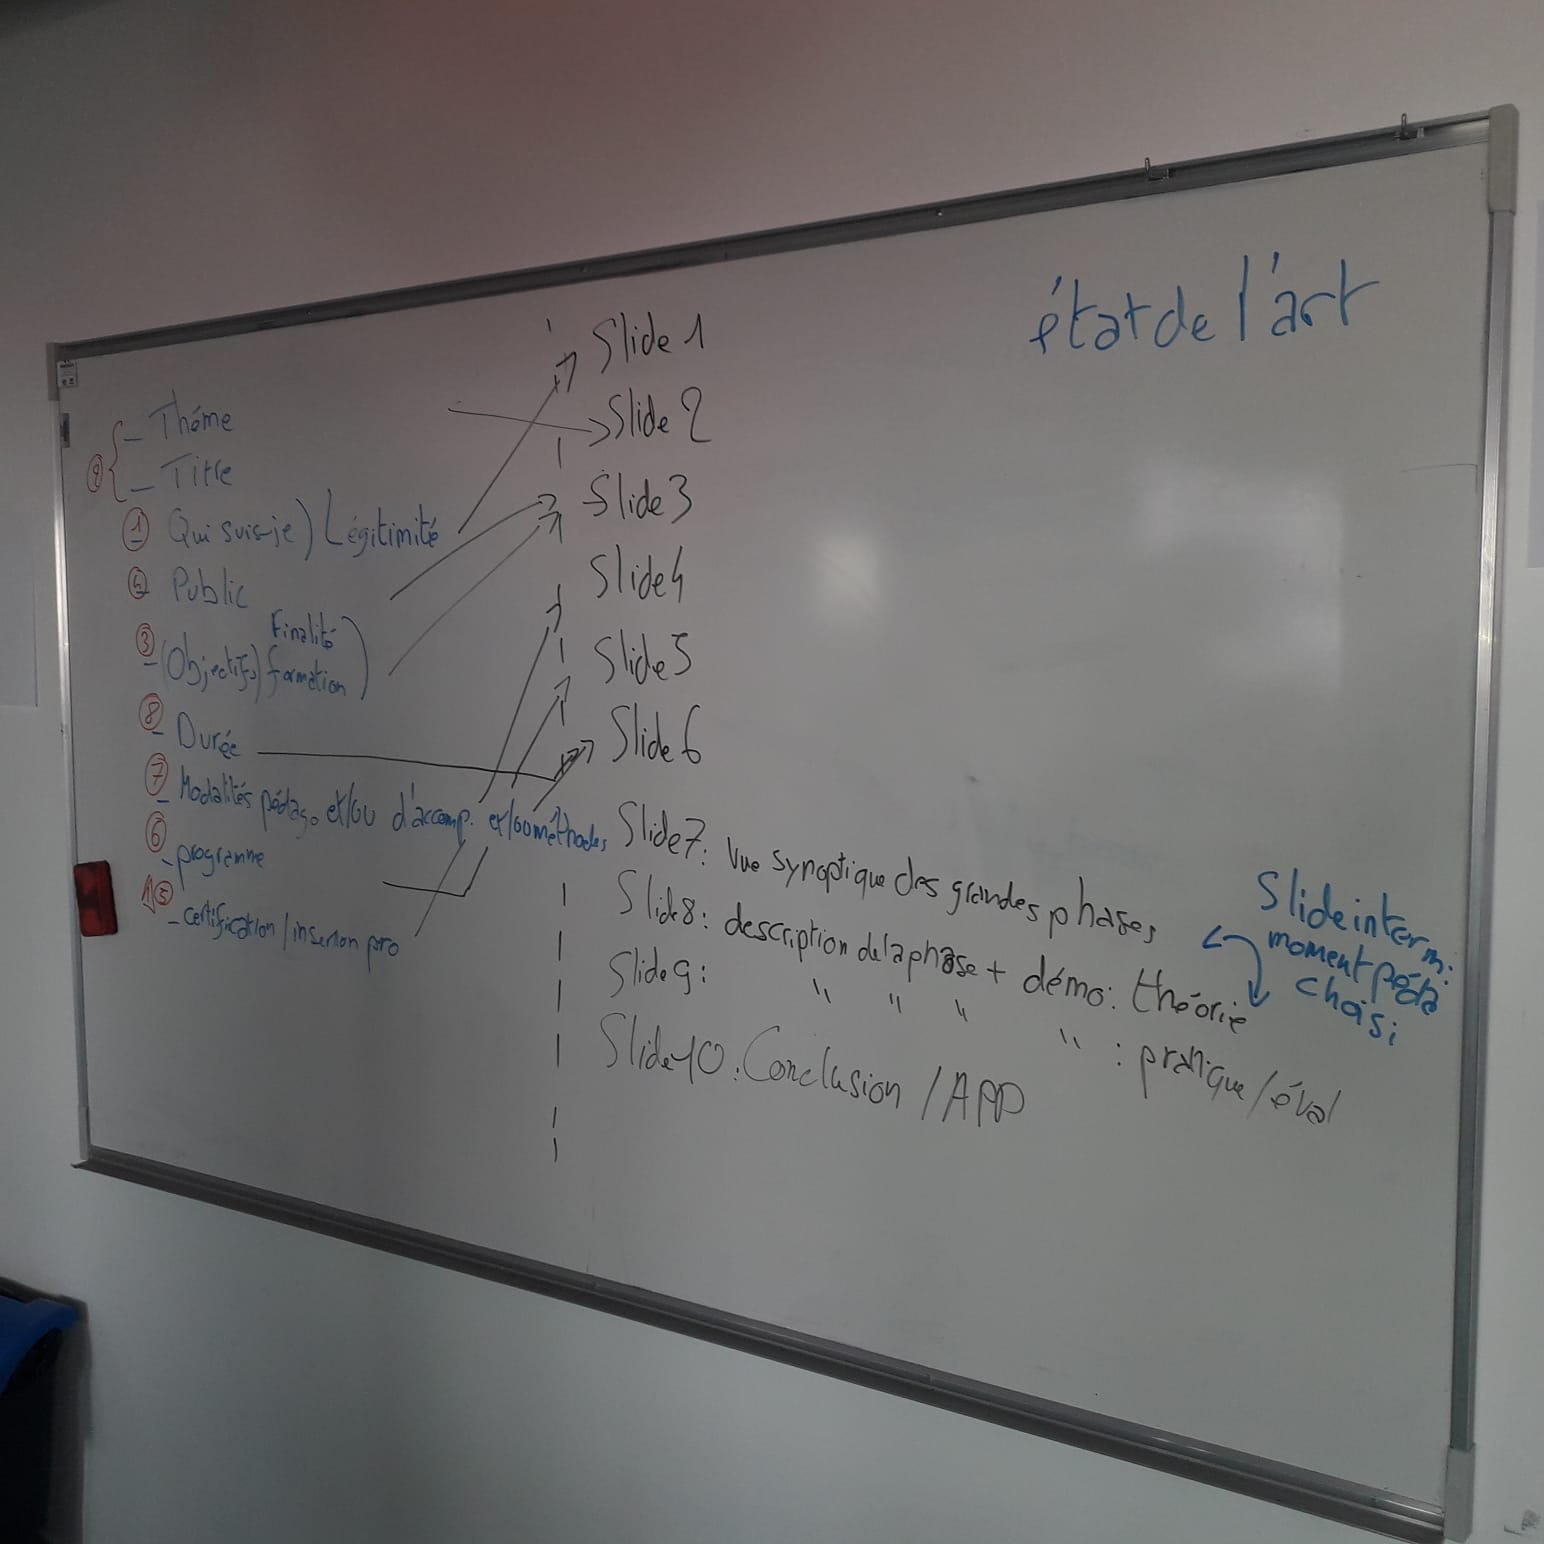 état de l'art
- Thème
- Titre
① Qui suis-je) Légitimité
Public
③ Finalité
- (Objectifs) formation)
⑧ - Durée
⑦ - Modalités pédago. et/ou d'accomp. et/ou méthodes
⑥ - programme
⑤ - certification / insertion pro
Slide 1
Slide 2
Slide 3
Slide 4
Slide 5
Slide 6
Slide 7: Vue synoptique des grandes phases
Slide 8: description de la phase + démo: théorie
Slide 9: " " " " : pratique/éval
Slide 10: Conclusion / APP
Slide interm:
moment péda
choisi